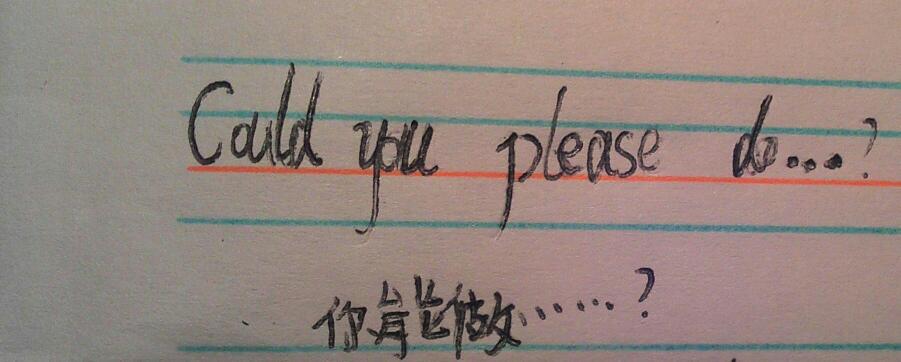 Could you please do...?
你能做……?